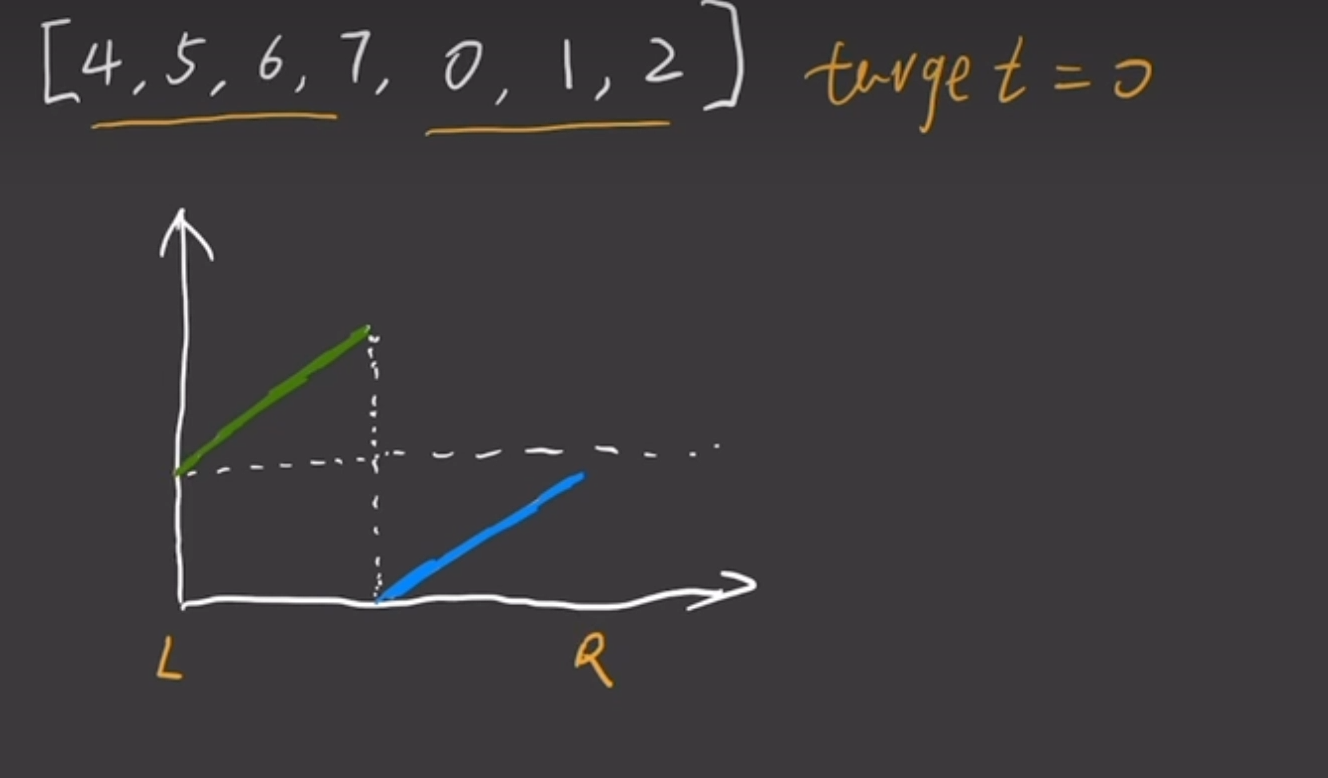 [4, 5, 6, 7, 0, 1, 2] target = 0
L R